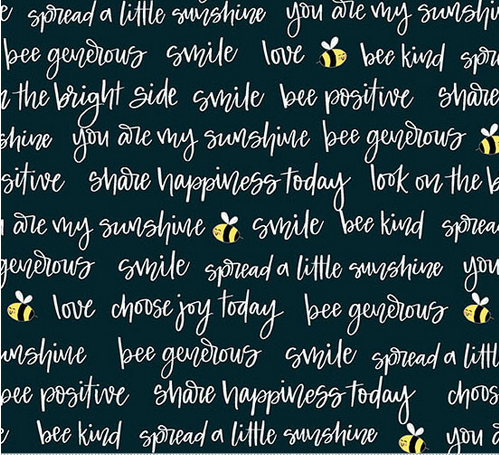 e spread a little sunshine you are my sunshin
bee generous smile love bee kind spr
n the bright side smile bee positive share
shine you are my sunshine bee generous
sitive share happiness today look on the b
u are my sunshine smile bee kind sprea
generous smile spread a little sunshine you
love choose joy today bee generous
unshine bee generous smile spread a littl
bee positive share happiness today choos
e bee kind spread a little sunshine you a